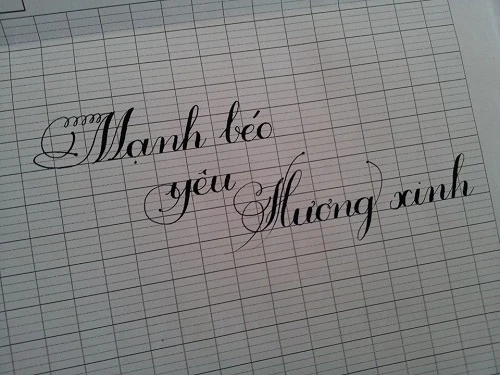 Mạnh béo
yêu
Hương xinh